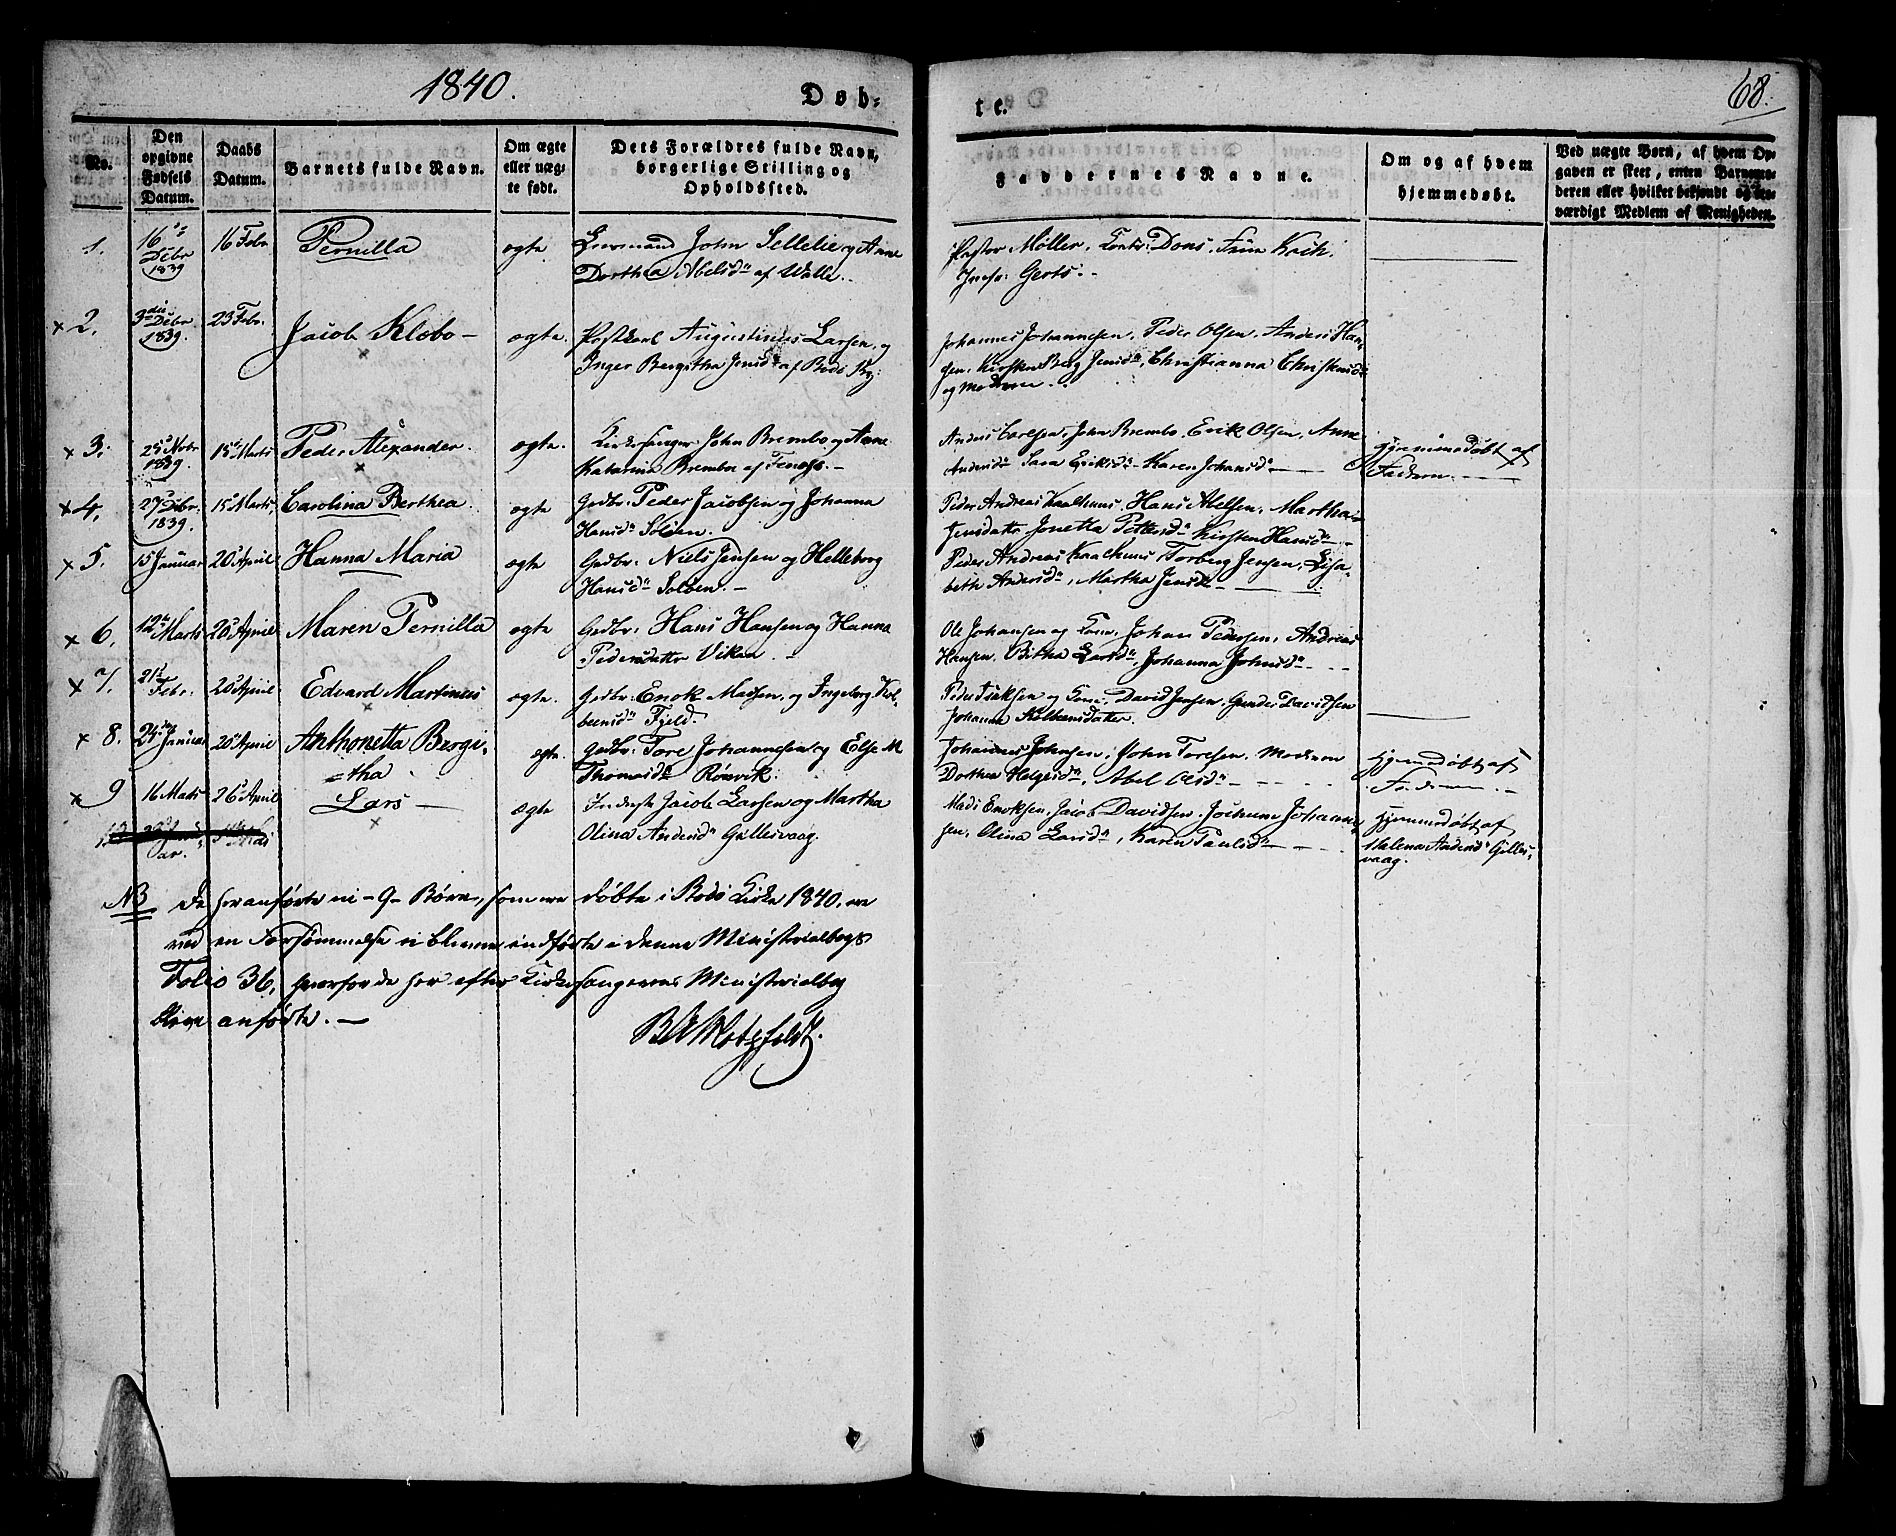 1840.
Døb=
te.
68.
No.
Den
opgivne
Fødsels
Datum.
Daabs
Datum.
Barnets fulde Navn.
Om ægte
eller uæg-
te født.
Dets Forældres fulde Navn,
borgerlige Stilling og
Opholdssted.
Faddernes Navne.
Om og af hvem
hjemmedøbt.
Ved uægte Børn, af hvem Op-
gaven er skeet, enten Barnemo-
deren eller hvilket bekjendt og tro-
værdigt Medlem af Menigheden.
1. 16 Debr 1839 16 Febr Pernilla ægte John Sellelie og Anne
Dorthea Abelsdr af Walle.
Pastor Møller, Dons, Koch,
Gerts.
x 2. 3die Debr. 1839. 23 Febr. Jacob Klæbo ægte. Postkarl Augustinus Larsen, og
Inger Bergitha Jensdr af Bodø By:
Johannes Johannesen, Peder Olsen, Anders Han-
sen, Kirsten Berg Jensdr, Christianna
og Moderen.
x 3. 25 Novbr 1839. 15 Marts Peder Alexander. ægte. Kirkesanger John Brembo og Anne
Katarina Brembo af
Anders Carlsen, John Brembo, Erik Olsen, Anne
Andersdr Sara Eriksdr Karen Johansdr
Hjemmedøbt af
Faderen.
x 4. 27 Debr. 1839. 15 Marts Carolina Berthea ægte Gdbr: Peder Jacobsen og Johanna
Hansdr Soløen.
Peder Andreas Hans Abelsen, Martha
Jensdattr Jonetta Kirsten Hansdr
x 5. 15 Januar 20 April Hanna Maria ægte Gdbr: Niels Jensen og Helleborg
Hansdr Soløen.
Peder Andreas Torberg Jensen, Lisa-
beth Andersdr, Martha Jensdr
x 6. 12 Marts 20 April Maren Pernilla ægte Gdbr: Hans Hansen og Hanna
Pedersdattr Viken.
Ole Johansen og Kone, Johan Pedersen, Andreas
Hansen, Larsdr, Johanna Johnsdr
x 7. 21 Febr. 20 April Edvard Martinus ægte. Gdbr: Enok Madsen, og Ingeborg Kol-
beensdr Fjeld.
Peder Isaksen og Kone, David Jensen, Gunder Davidsen
Johanna Kolbensdatter.
x 8. 24 Januar 20 April Anthonetta Bergi-
=tha ægte. Gdbr: Tore Johannesen og Else M
Thomasdr Rønvik.
Johannes Johnsen, John Toresen, Moderen
Dorthea Helgesdr, Abel Olsdr
Hjemmedøbt af
Faderen.
x 9 16 Marts 26 April Lars ægte Inderst Jacob Larsen og Martha
Olina Andersdr Gillesvaag.
Mads Enoksen, Jacob Davidsen, Jochum Johanne-
sen, Olina Larsdr, Karen Paulsdr
Hjemmedøbt af
Malena Andersdr Gilles-
vaag.
NB De heranførte ni - 9 - Børn, som ere døbte i Bodø Kirke 1840, ere
ved en Forsømmelse ei blevne indførte i denne Ministerialbogs
Folio 36, hvorfor de her efter Kirkesangerens Ministerialbog
blive anførte.